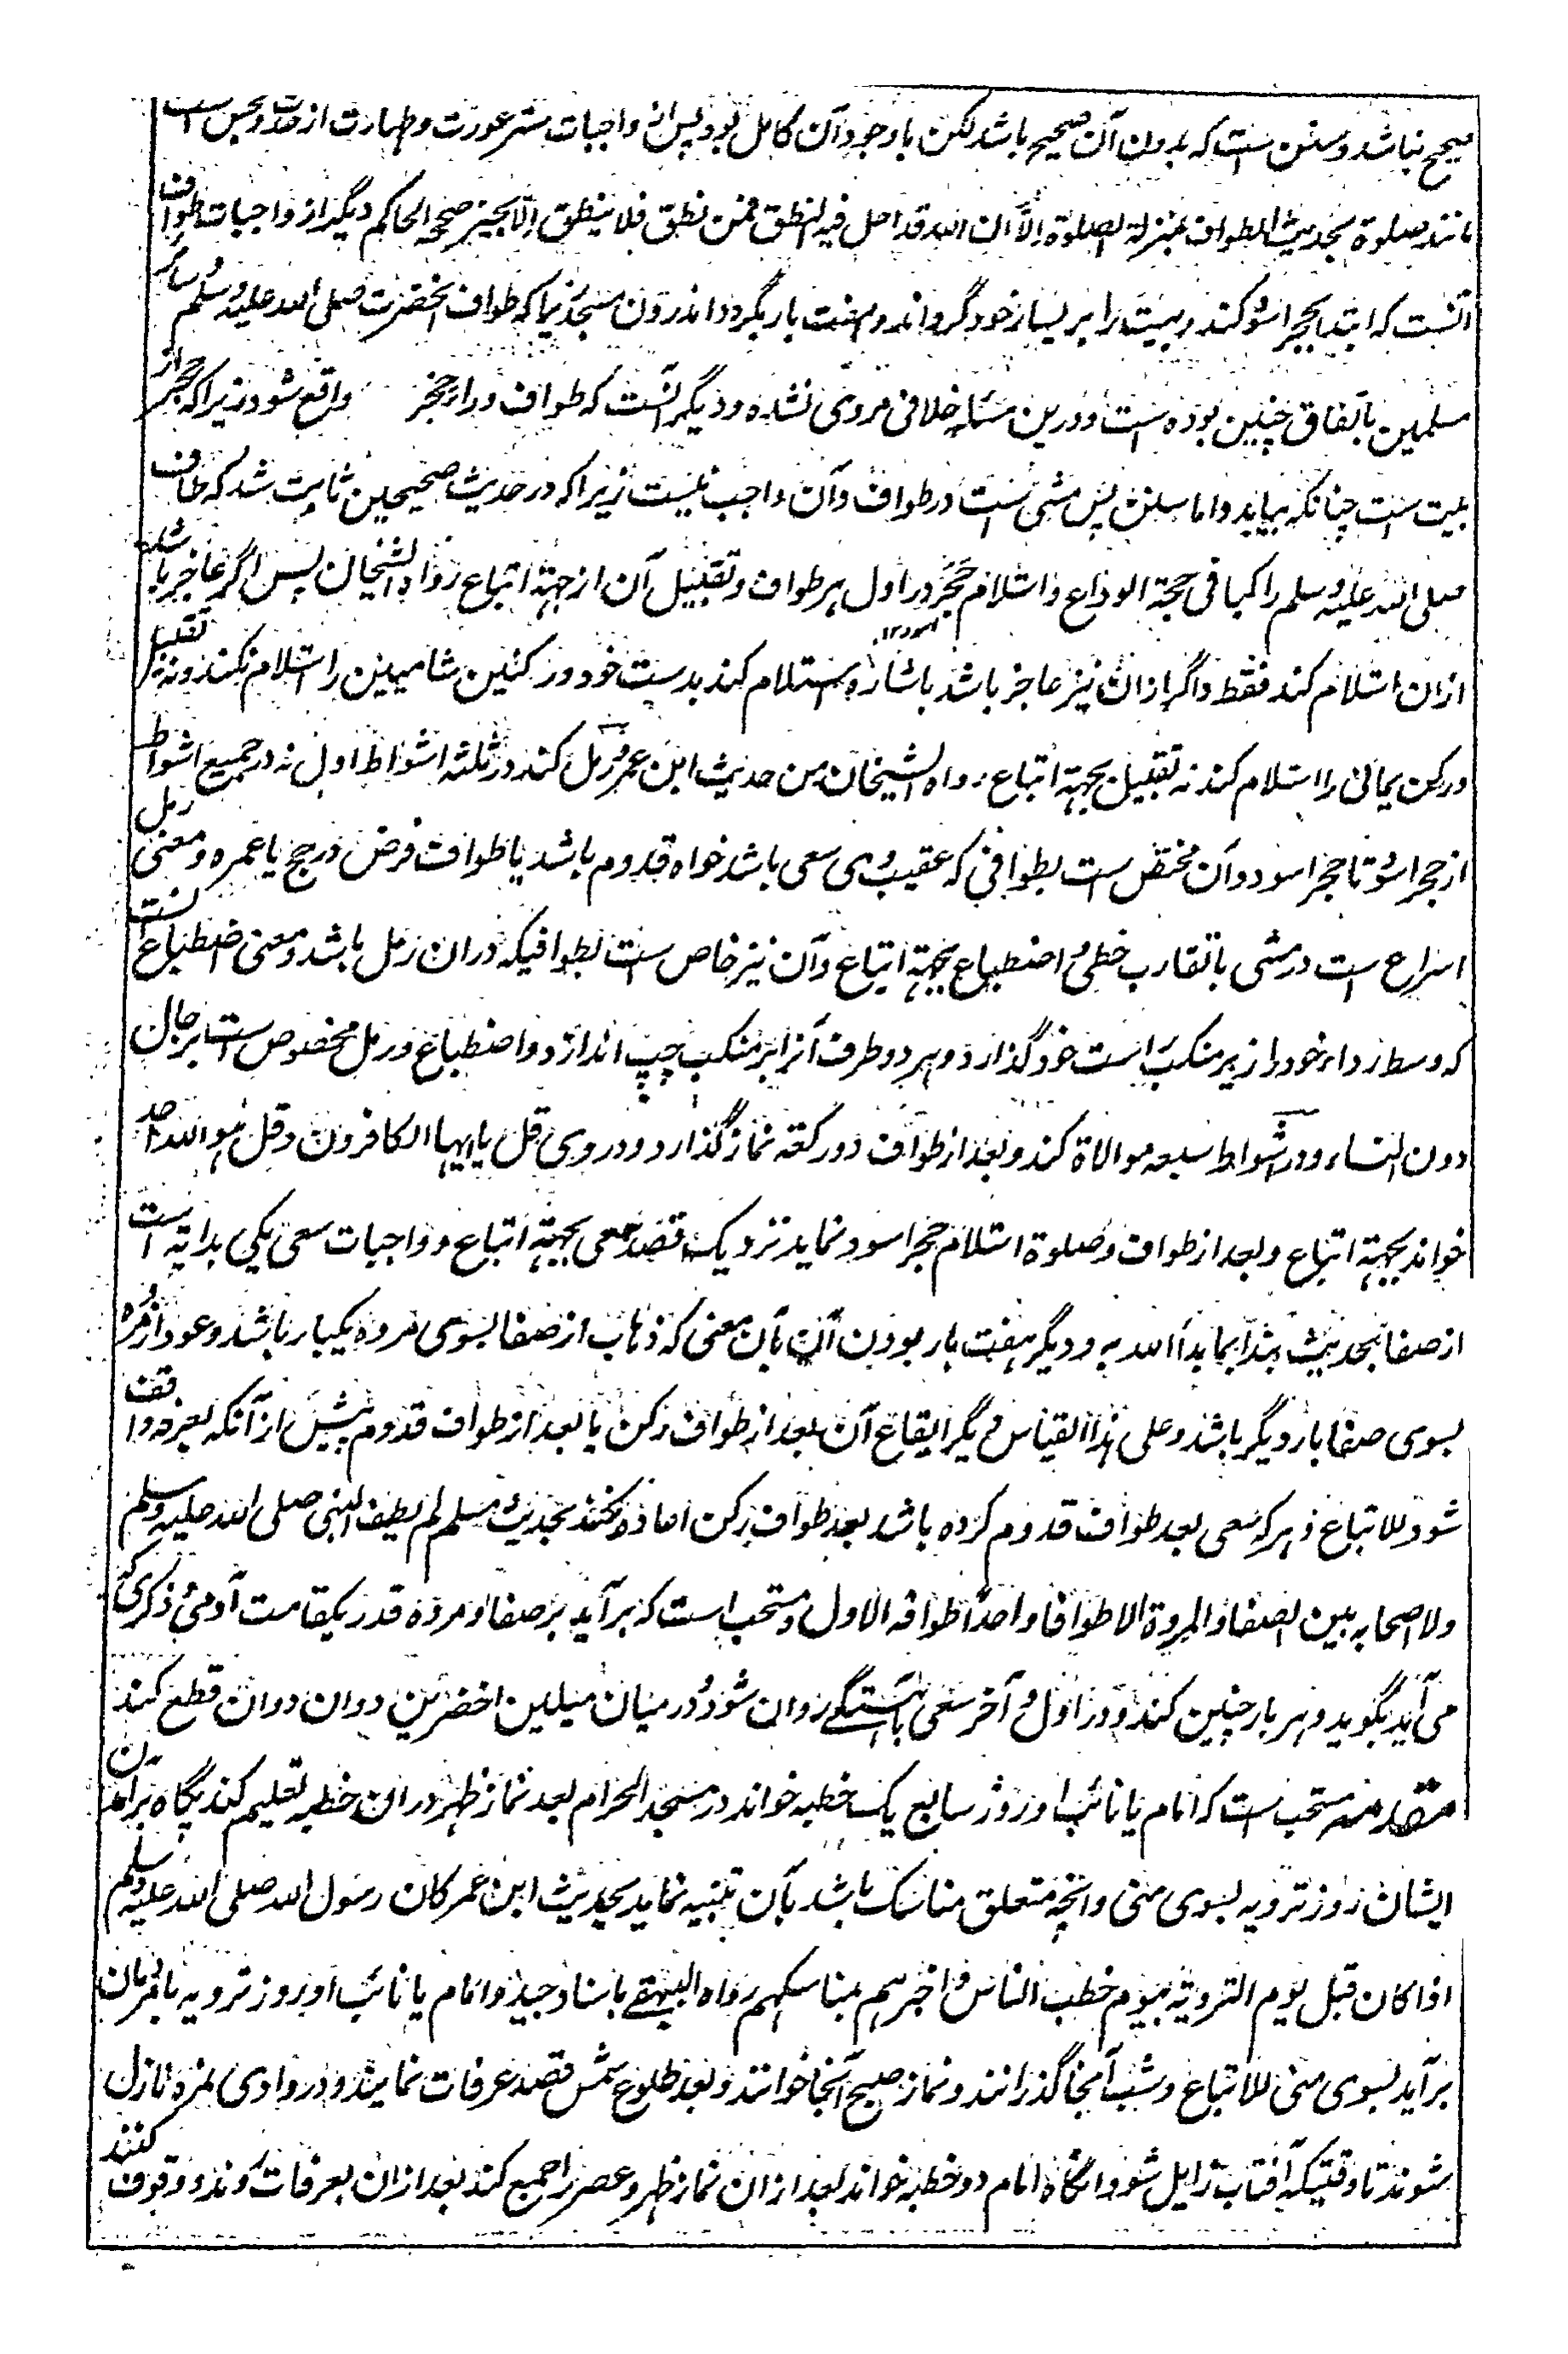 صحیح نباشد و سنن ست که بدون آن صحیح باشد لکن باوجود آن کامل بود پس از واجبات ستر عورت و طهارت از حدث و نجس ست
مانند صلوة بحدیث الطواف بمنزلة الصلوة الا ان الله قد احل فیه النطق فمن نطق فلا ینطق الا بخیر صححه الحاکم دیگر از واجبات طواف
آنست که ابتدا بحجر اسود کند و بیت را بر یسار خود گرداند و هفت بار بگردد اندرون مسجد زیرا که طواف آنحضرت صلی الله علیه وسلم و سائر
مسلمین باتفاق چنین بوده است و درین مسئله خلافی مروی نشده و دیگر آنست که طواف وراء حجر واقع شود زیرا که حجر از
بیت ست چنانکه بیاید و اما سنن پس مشی ست در طواف و آن واجب نیست زیرا که در حدیث صحیحین ثابت شد که طاف
صلی الله علیه وسلم راکبا فی حجة الوداع و استلام حجر در اول هر طواف و تقبیل آن از جهة اتباع رواه الشیخان پس اگر عاجز باشد
ازان استلام کند فقط و اگر ازان نیز عاجز باشد باشاره استلام کند بدست خود و رکنین شامیین را استلام نکند و نه تقبیل
و رکن یمانی را استلام کند نه تقبیل بجهة اتباع رواه الشیخان من حدیث ابن عمر و رمل کند در ثلثه اشواط اول نه در جمیع اشواط
از حجر اسود تا حجر اسود و آن مختص ست بطوافی که عقیب وی سعی باشد خواه قدوم باشد یا طواف فرض در حج یا عمره و معنی رمل
اسراع ست در مشی با تقارب خطی و اضطباع بجهة اتباع و آن نیز خاص ست بطوافیکه دران رمل باشد و معنی اضطباع آنست
که وسط رداء خود را زیر منکب راست خود گذارد و هر دو طرف آنرا بر منکب چپ اندازد و اضطباع و رمل مخصوص ست برجال
دون النساء و در اشواط سبعه موالاة کند و بعد از طواف دو رکعه نماز گذارد و در وی قل یا ایها الکافرون و قل هو الله احد
خواند بجهة اتباع و بعد از طواف و صلوة استلام حجر اسود نماید نزدیک قصد سعی بجهة اتباع و واجبات سعی یکی بدایة ست
از صفا بحدیث نبدأ بما بدأ الله به و دیگر هفت بار بودن آن بآن معنی که ذهاب از صفا بسوی مروه یکبار باشد و عود از مروه
بسوی صفا بار دیگر باشد و علی هذا القیاس دیگر ایقاع آن بعد از طواف رکن یا بعد از طواف قدوم پیش از آنکه بعرفه واقف
شود للاتباع و هرکه سعی بعد طواف قدوم کرده باشد بعد طواف رکن اعاده نکند بحدیث مسلم لم یطف النبی صلی الله علیه وسلم
ولا اصحابه بین الصفا و المروة الا طوافا واحدا طوافه الاول و مستحب است که برآید بر صفا و مروه قدر یکقامت آدمی و ذکری که
می آید بگوید و هر بار چنین کند و در اول و آخر سعی بآهستگی روان شود و در میان میلین اخضرین دوان دوان قطع کند
مقدمه مستحب ست که امام یا نائب او روز سابع یک خطبه خواند در مسجد الحرام بعد نماز ظهر دران خطبه تعلیم کند پگاه برآمدن
ایشان روز ترویه بسوی منی و آنچه متعلق مناسک باشد بآن تنبیه نماید بحدیث ابن عمر کان رسول الله صلی الله علیه وسلم
اذا کان قبل یوم الترویة بیوم خطب الناس و اخبرهم بمناسکهم رواه البیهقی باسناد جید و امام یا نائب او بروز ترویه با مردمان
برآید بسوی منی للاتباع و شب آنجا گذرانند و نماز صبح آنجا خوانند و بعد طلوع شمس قصد عرفات نمایند و در وادی نمره نازل
شوند تا وقتیکه آفتاب زایل شود و آنگاه امام دو خطبه خواند بعد ازان نماز ظهر و عصر را جمع کند بعد ازان بعرفات روند و وقوف کنند